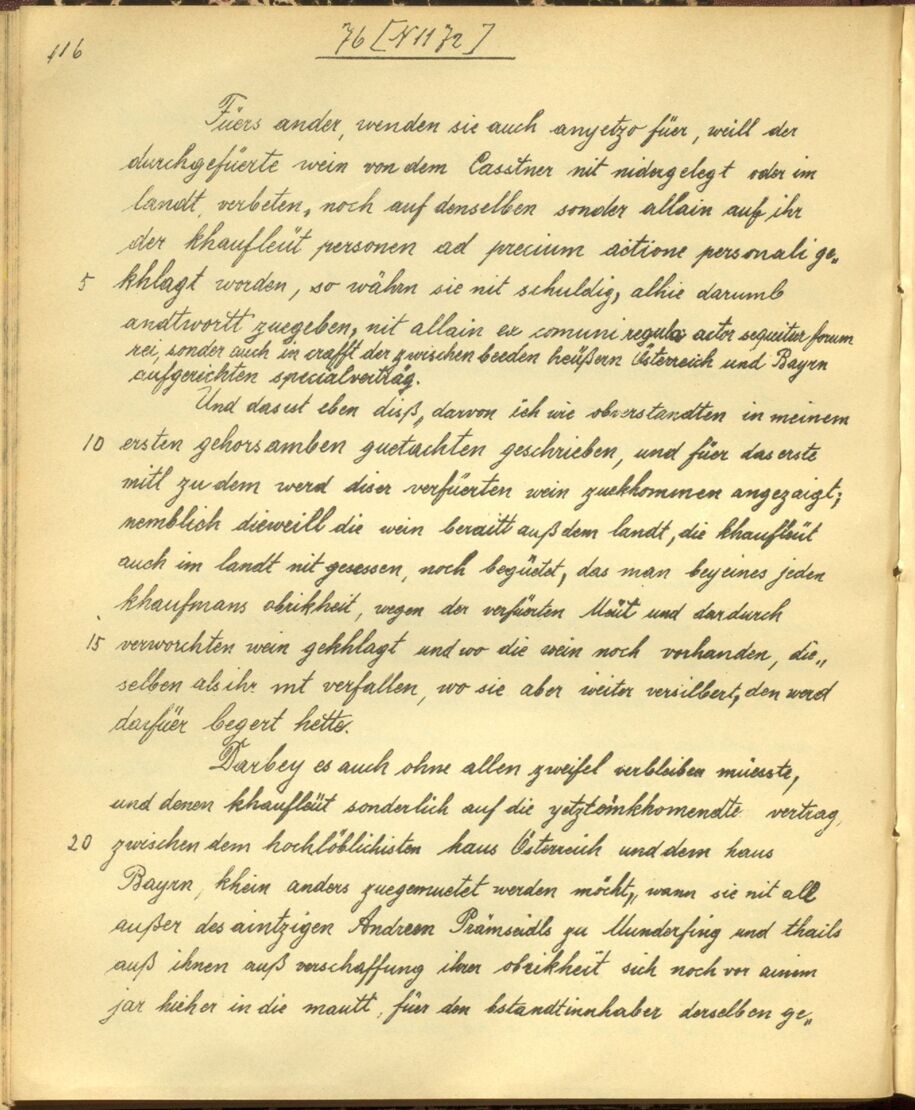 116
76 [N 1172]
Füers ander, wenden sie auch anyetzo füer, weill der
durchgefüerte wein von dem Casstner nit nidergelegt oder im
landt, verbeten, noch auf denselben sonder allain auf ihr
der khaufleüt personen ad precium actione personali ge„
5 khlagt worden, so währn sie nit schuldig, alhie darumb
andtwortt zuegeben, nit allain ex comuni regula actor sequitur forum
rei, sonder auch in crafft der zwischen beeden heüßern Österreich und Bayrn
aufgerichten specialverträg.
Und das ist eben diß, darvon ich wie obverstandten in meinem
10 ersten gehorsamben guetachten geschrieben, und füer das erste
mitl zu dem werd diser verfüerten wein zuekhommen angezaigt;
nemblich dieweill die wein beraitt auß dem landt, die khaufleüt
auch im landt nit gesessen, noch begüetet, das man bey eines jeden
khaufmans obrikheit, wegen der verfüerten Meüt und dardurch
15 verworchten wein gekhlagt und wo die wein noch vorhanden, die„
selben als ihr mt verfallen, wo sie aber weiter versilbert, den werd
darfüer begert hette.
Darbey es auch ohne allen zweifel verbleiben müesste,
und denen khaufleüt sonderlich auf die yetzteinkhomendte vertrag,
20 zwischen dem hochlöblichisten haus Österreich und dem haus
Bayrn, khein anders zuegemuetet werden möcht, wann sie nit all
außer des aintzigen Andreen Prämseidls zu Munderfing und thails
auß ihnen auß verschaffung ihrer obrikheit sich noch vor ainem
jar hieher in die mautt, für den bstandtinnhaber derselben ge„